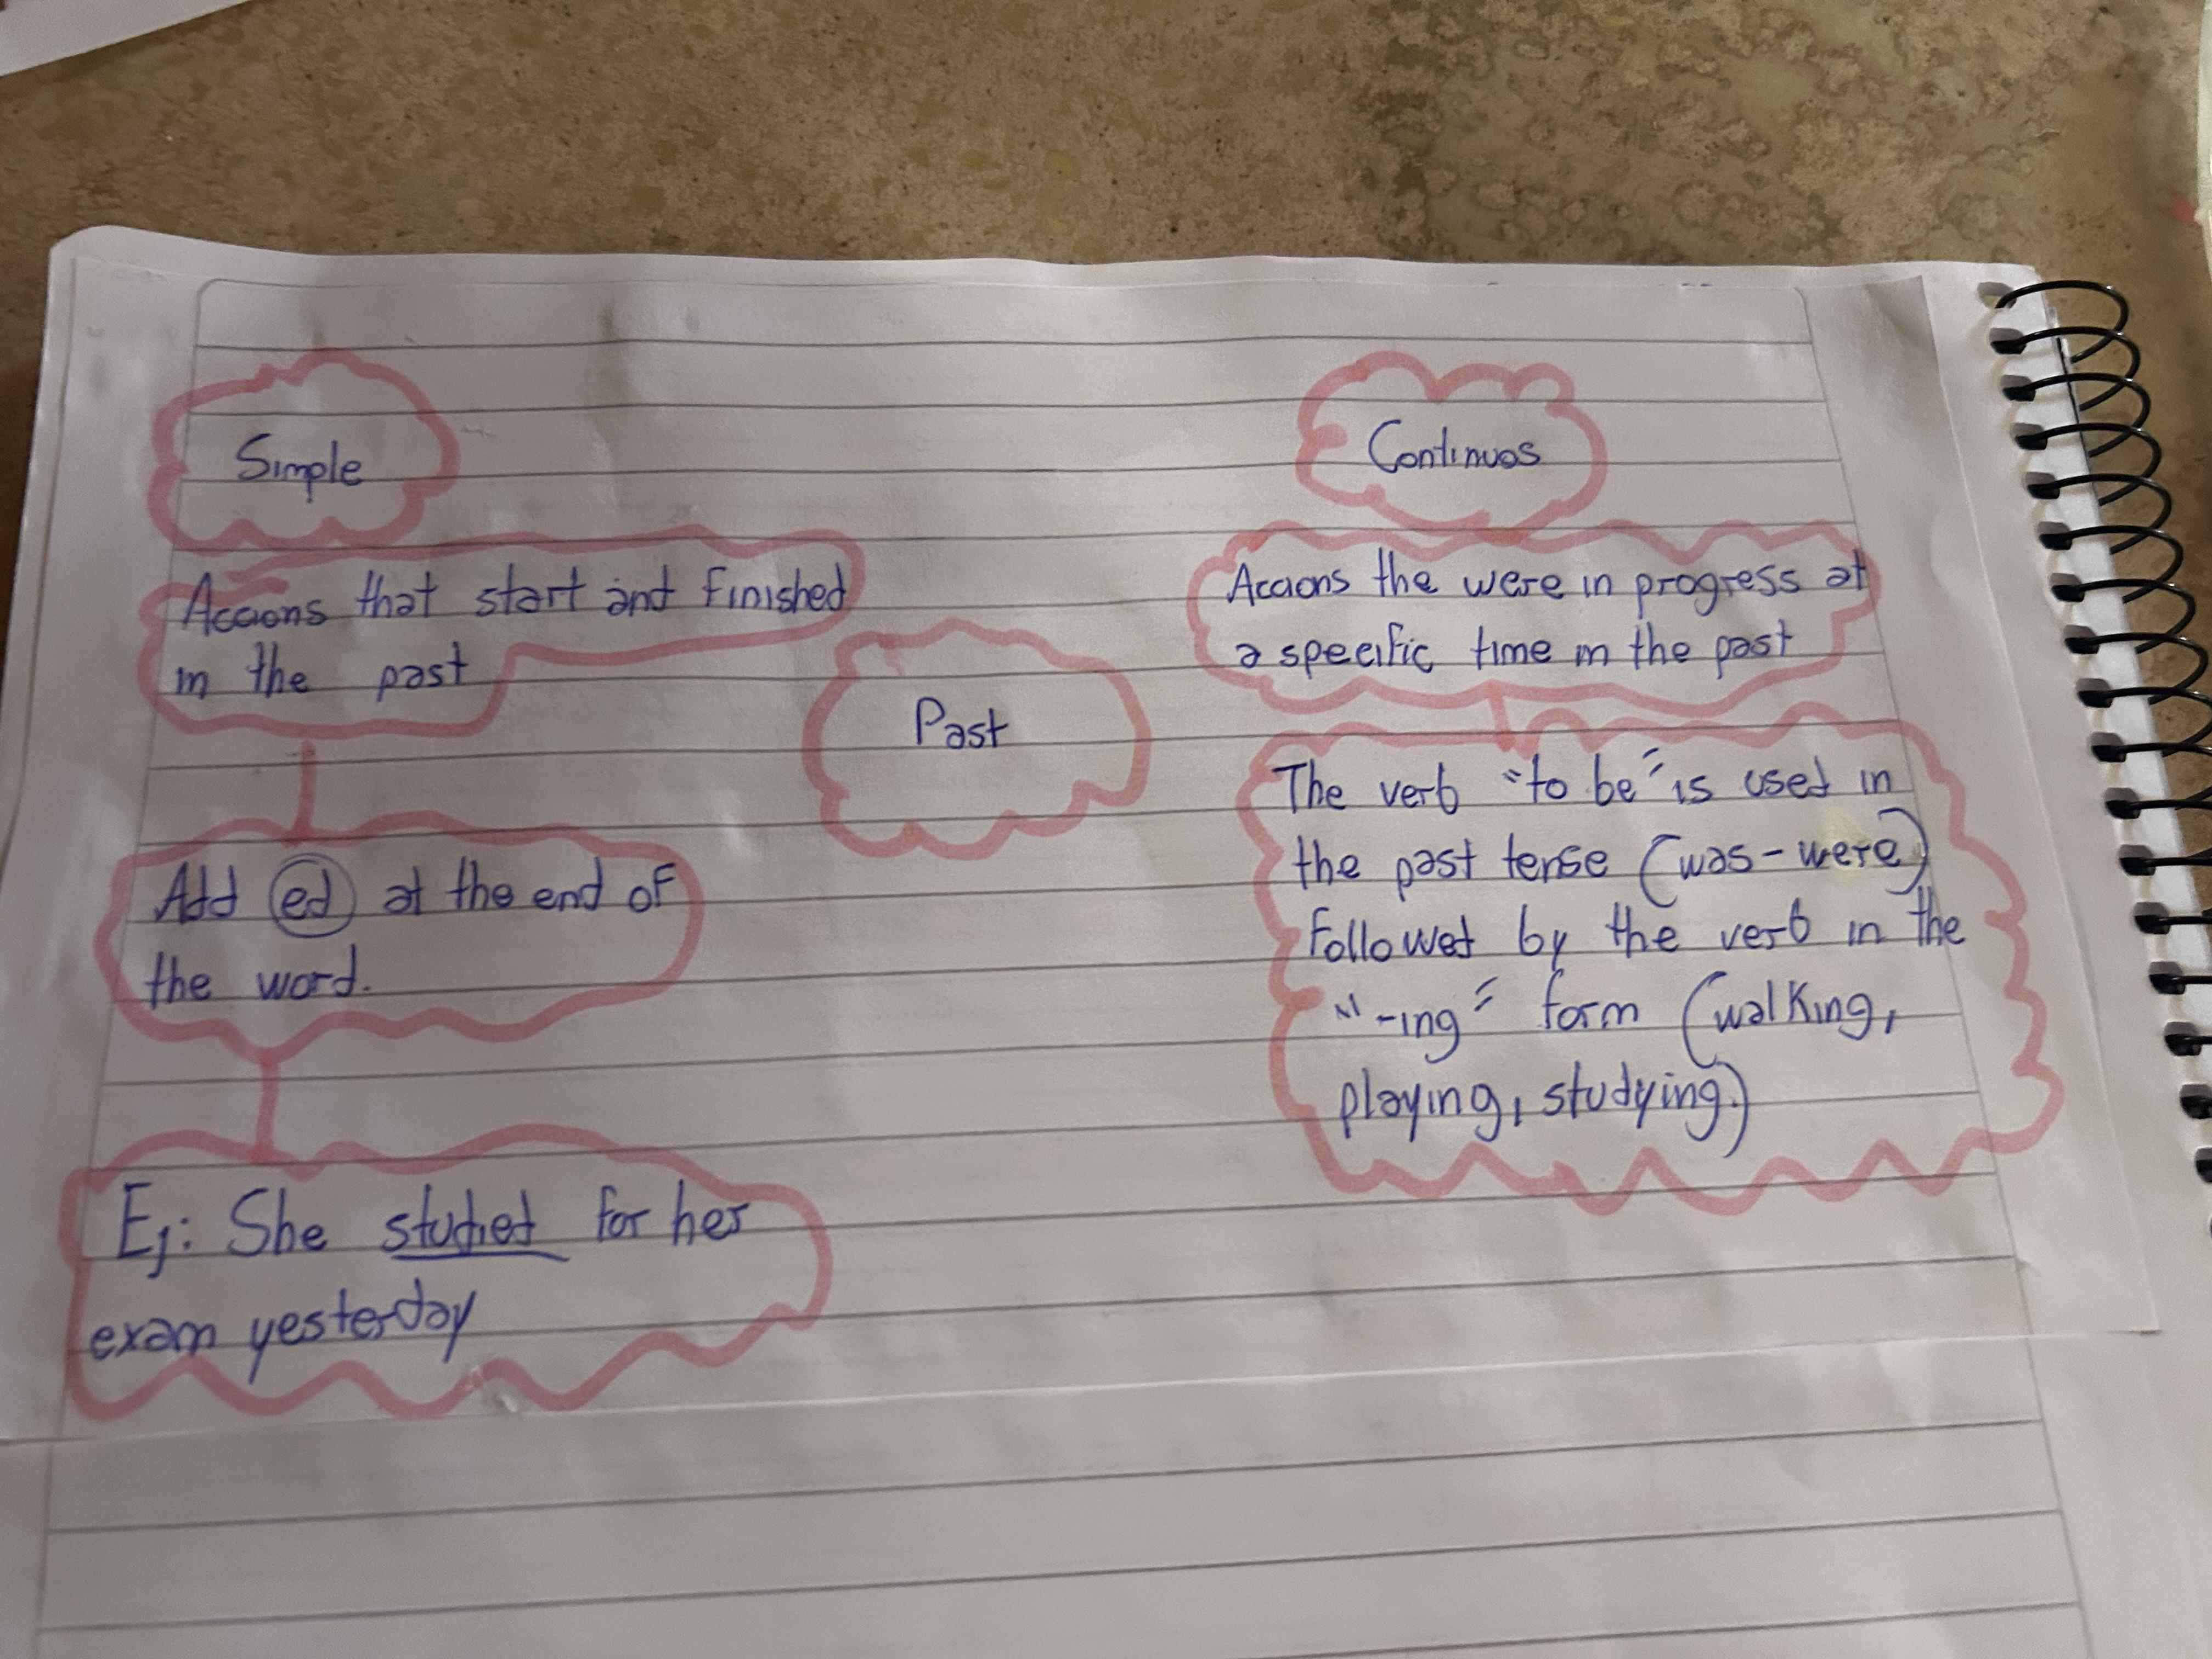 Simple
Accions that start and finished
in the past
Add ed at the end of
the word.
Ej: She studied for her
exam yesterday
Past
Continuos
Accions the were in progress at
a specific time in the past
The verb "to be" is used in
the past tense (was-were)
followed by the verb in the
"-ing" form (walking,
playing, studying.)